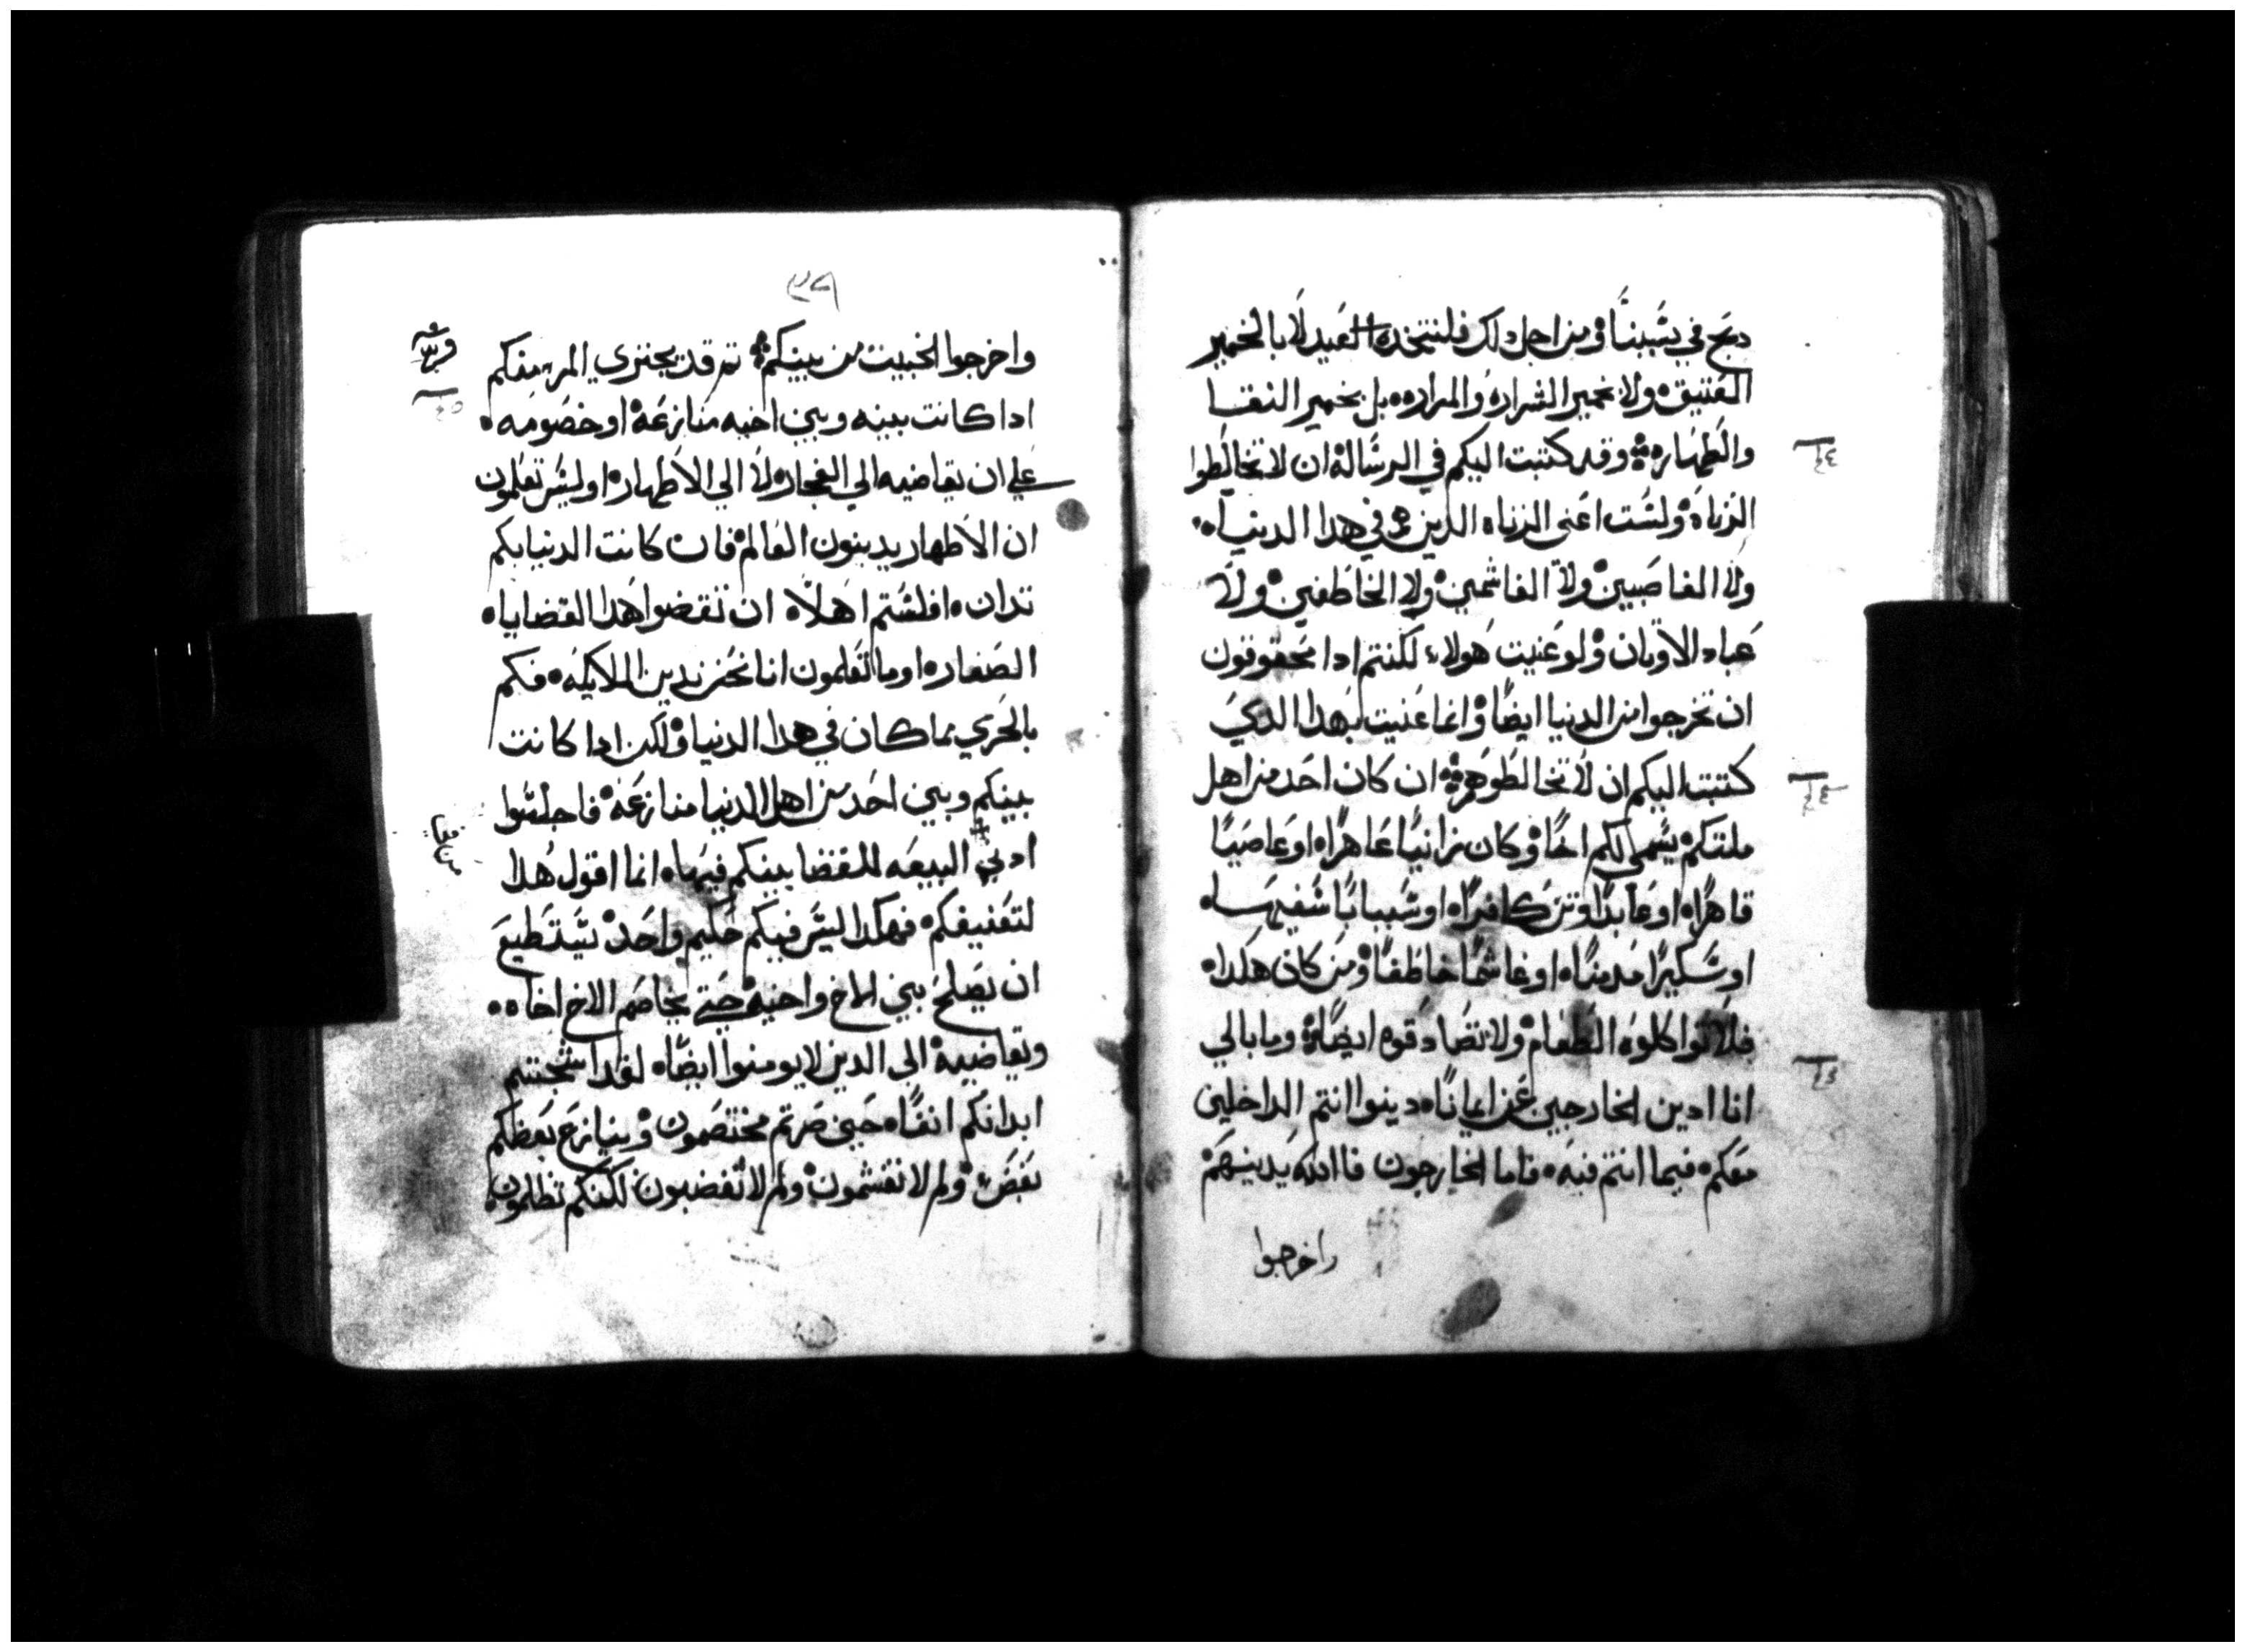 دبح في سببنا ومن اجل دلك فلنتخد العيد لا بالخمير
العتيق ولا بخمير الشراره والمراره بل بخمير النقا
والطهاره وقد كتبت اليكم في الرساله ان لا تخالطوا
الزناه ولست اعني الزناه الدين في هدا الدنيا
ولا الغاصبين ولا الغاشمين ولا الخاطفين ولا
عباد الاوتان ولو عنيت هولاء لكنتم ادا محقوقون
ان تخرجوا من الدنيا ايضا وانما عنيت بهدا الدي
كتبت اليكم ان لا تخالطوهم ان كان احد من اهل
ملتكم يسمى لكم اخا وكان زانيا عاهرا او عاصيا
قاهرا او عابد وتن كافرا او سبابا سفيها
او سكيرا مدمنا او غاشما خاطفا ومن كان هكدا
فلا تواكلوه الطعام ولا تصادقوه ايضا وما بالي
انا ادين الخارجين عن ايماننا دينوا انتم الداخلين
معكم فيما انتم فيه فاما الخارجون فالله يدينهم
واخرجوا
٣٩
واخرجوا الخبيت من بينكم تم قد يجتري المر منكم
ادا كانت بينه وبين اخيه منازعه او خصومه
على ان يقاضيه الي الفجار لا الي الاطهار اوليس تعلمون
ان الاطهار يدينون العالم فان كانت الدنيا بكم
تدان افلستم اهلا ان تقضوا هدا القضايا
الصغار اوما تعلمون اننا نحن ندين الملايكه فكم
بالحري بما كان في هدا الدنيا ولكن ادا كانت
بينكم وبين احد من اهل الدنيا منازعه فاجلسوا
ادني البيعه للقضا بينكم فيها انما اقول هدا
لتعنيفكم فهكدا ليس فيكم حكيم واحد يستطيع
ان يصلح بين الاخ واخيه حتى يخاصم الاخ اخاه
ويقاضيه الي الدين لا يومنوا ايضا لقد اشجبتم
ابدانكم انفا حين صرتم مختصمون وينازع بعضكم
بعض ولم لا تغشمون ولم لا تغضبون لكنكم تظلمون